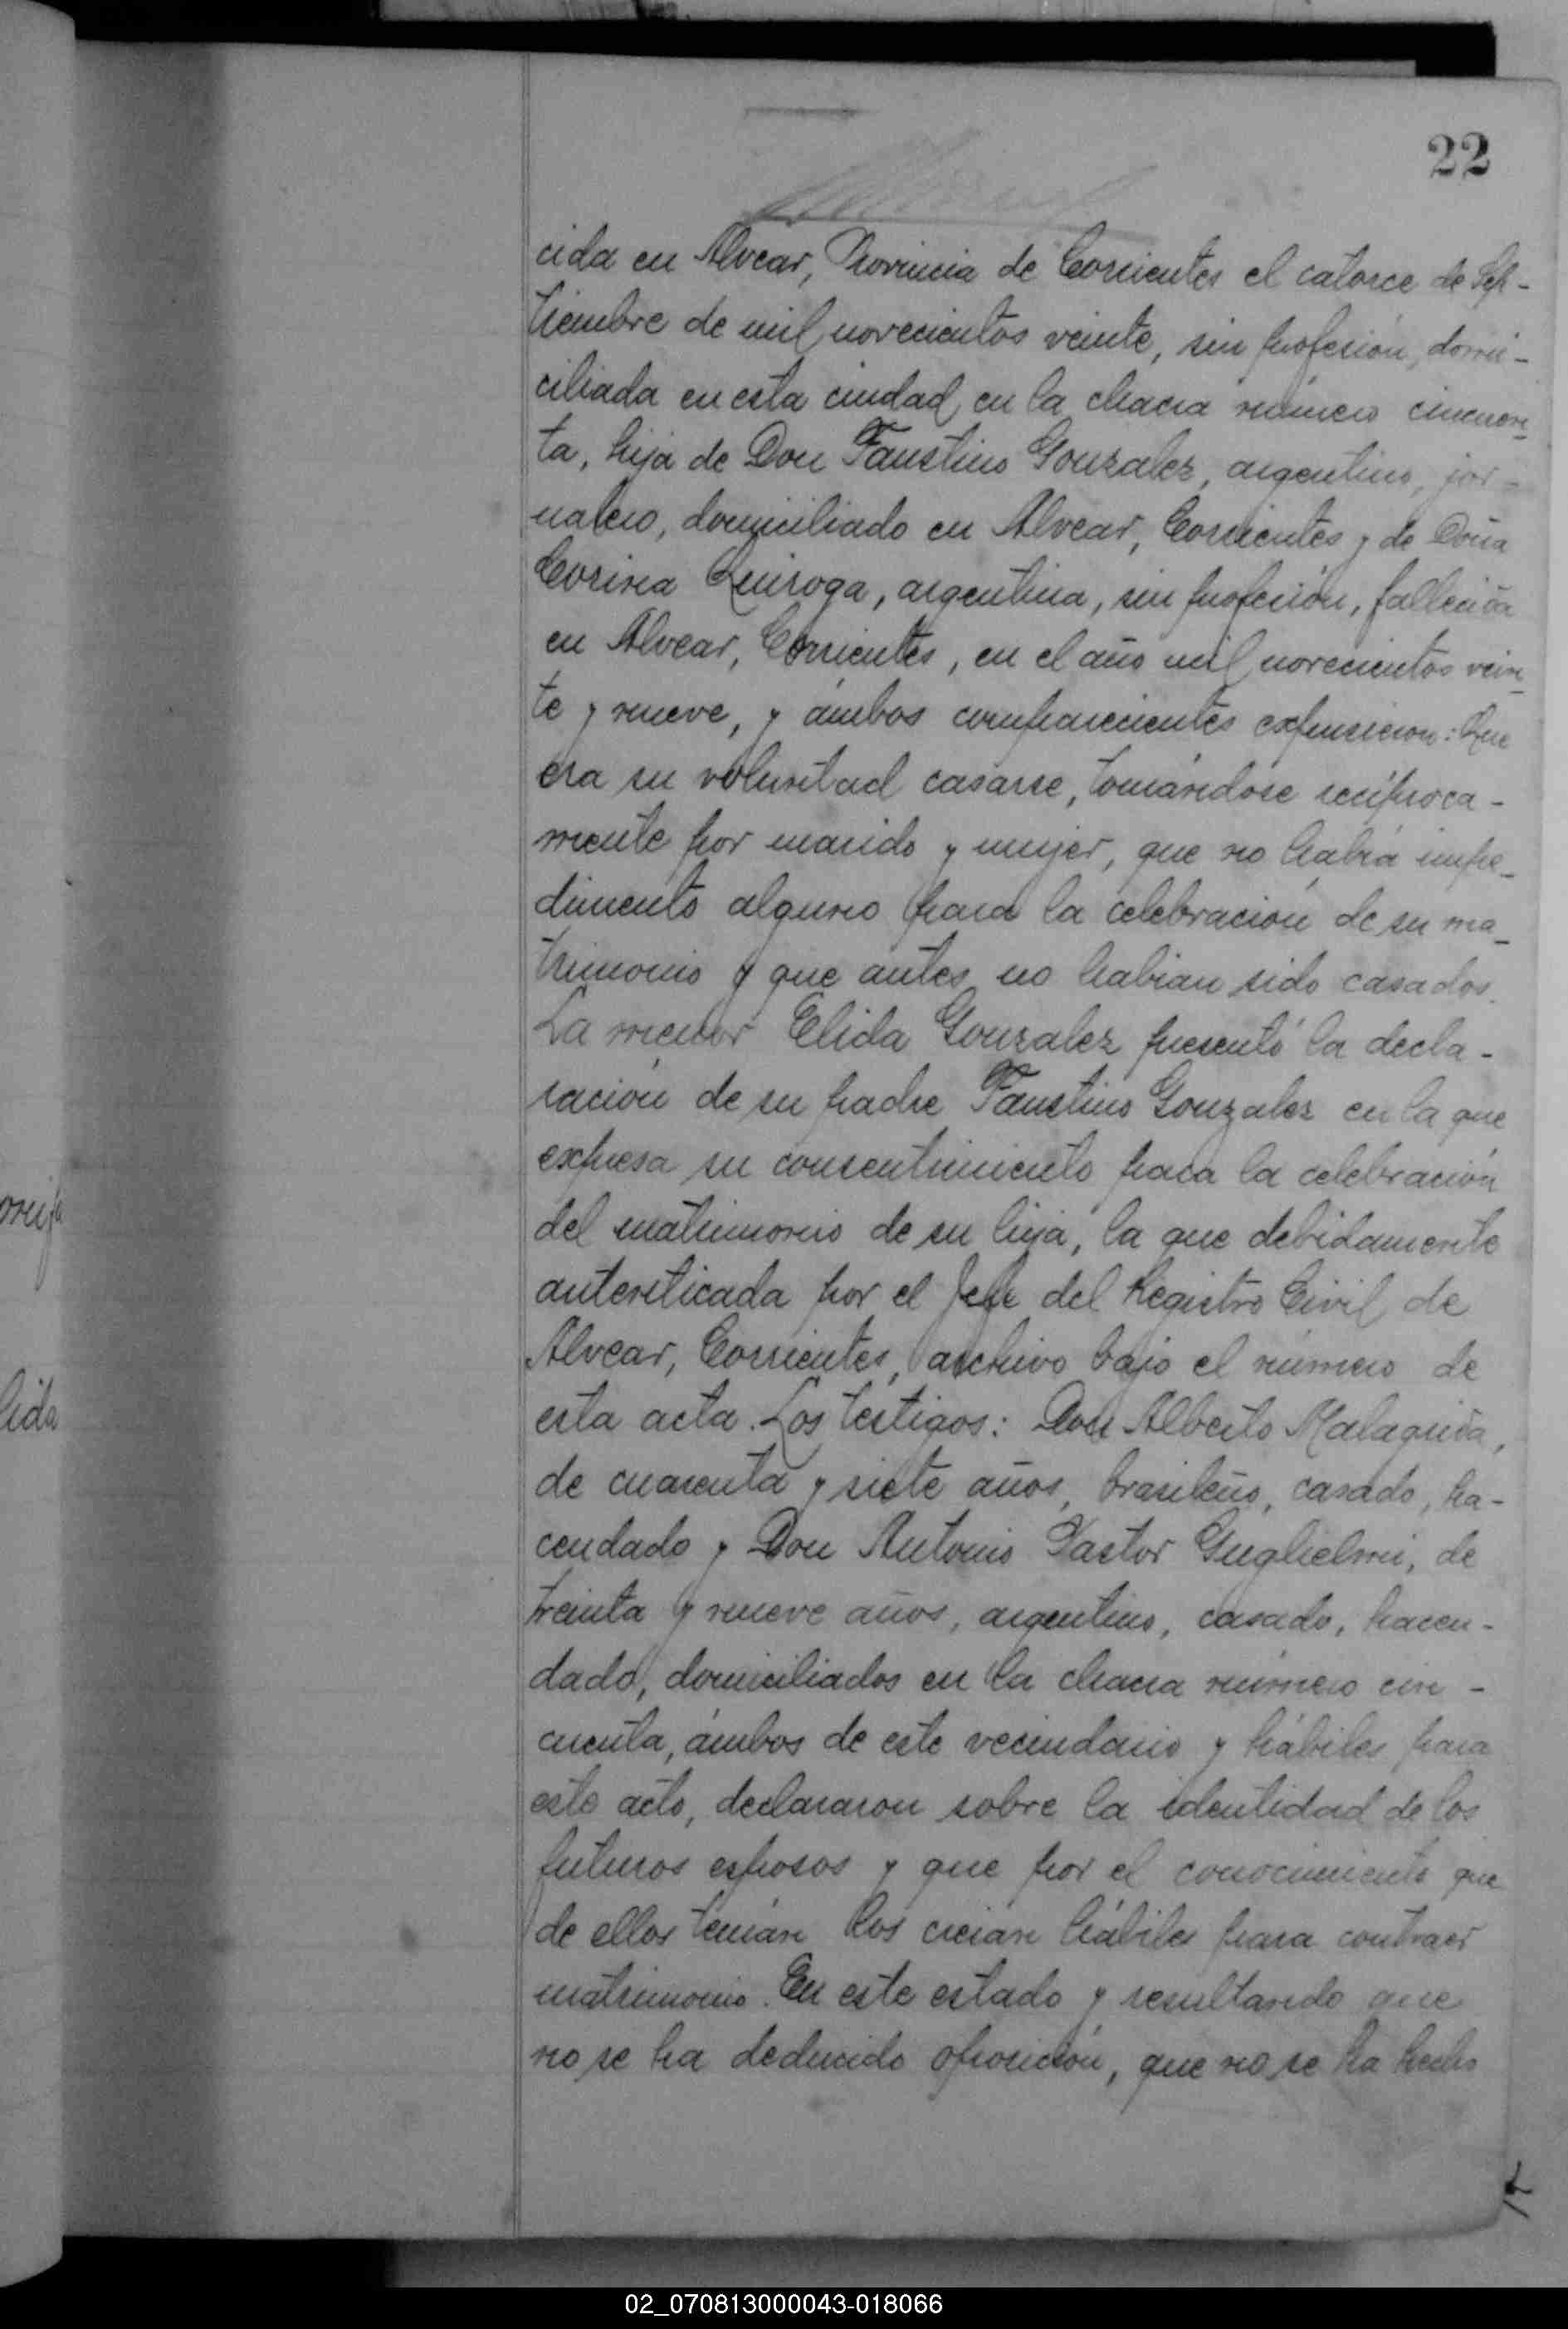 22
cida en Alvear, Provincia de Corrientes el catorce de Sep-
tiembre de mil novecientos veinte, sin profesión, domi-
ciliada en esta ciudad, en la chacra número cincuen-
ta, hija de Don Faustino Gonzalez, argentino, jor-
nalero, domiciliado en Alvear, Corrientes y de Doña
Corina Quiroga, argentina, sin profesión, fallecida
en Alvear, Corrientes, en el año mil novecientos vein-
te y nueve, y ámbos comparecientes expusieron: Que
era su voluntad casarse, tomándose recíproca-
mente por marido y mujer, que no había impe-
dimento alguno para la celebración de su ma-
trimonio y que antes no habian sido casados.
La menor Elida Gonzalez presentó la decla-
ración de su padre Faustino Gonzalez en la que
expresa su consentimiento para la celebración
del matrimonio de su hija, la que debidamente
autenticada por el Jefe del Registro Civil de
Alvear, Corrientes, archivo bajo el número de
esta acta. Los testigos: Don Alberto Malaguida,
de cuarenta y siete años, brasileño, casado, ha-
cendado y Don Antonio Pastor Guglielmi, de
treinta y nueve años, argentino, casado, hacen-
dado, domiciliados en la chacra número cin-
cuenta, ámbos de este vecindario y hábiles para
este acto, declararon sobre la identidad de los
futuros esposos y que por el conocimiento que
de ellos tenían los creían hábiles para contraer
matrimonio. En este estado y resultando que
no se ha deducido oposición, que no se ha hecho
lida
02_070813000043-018066